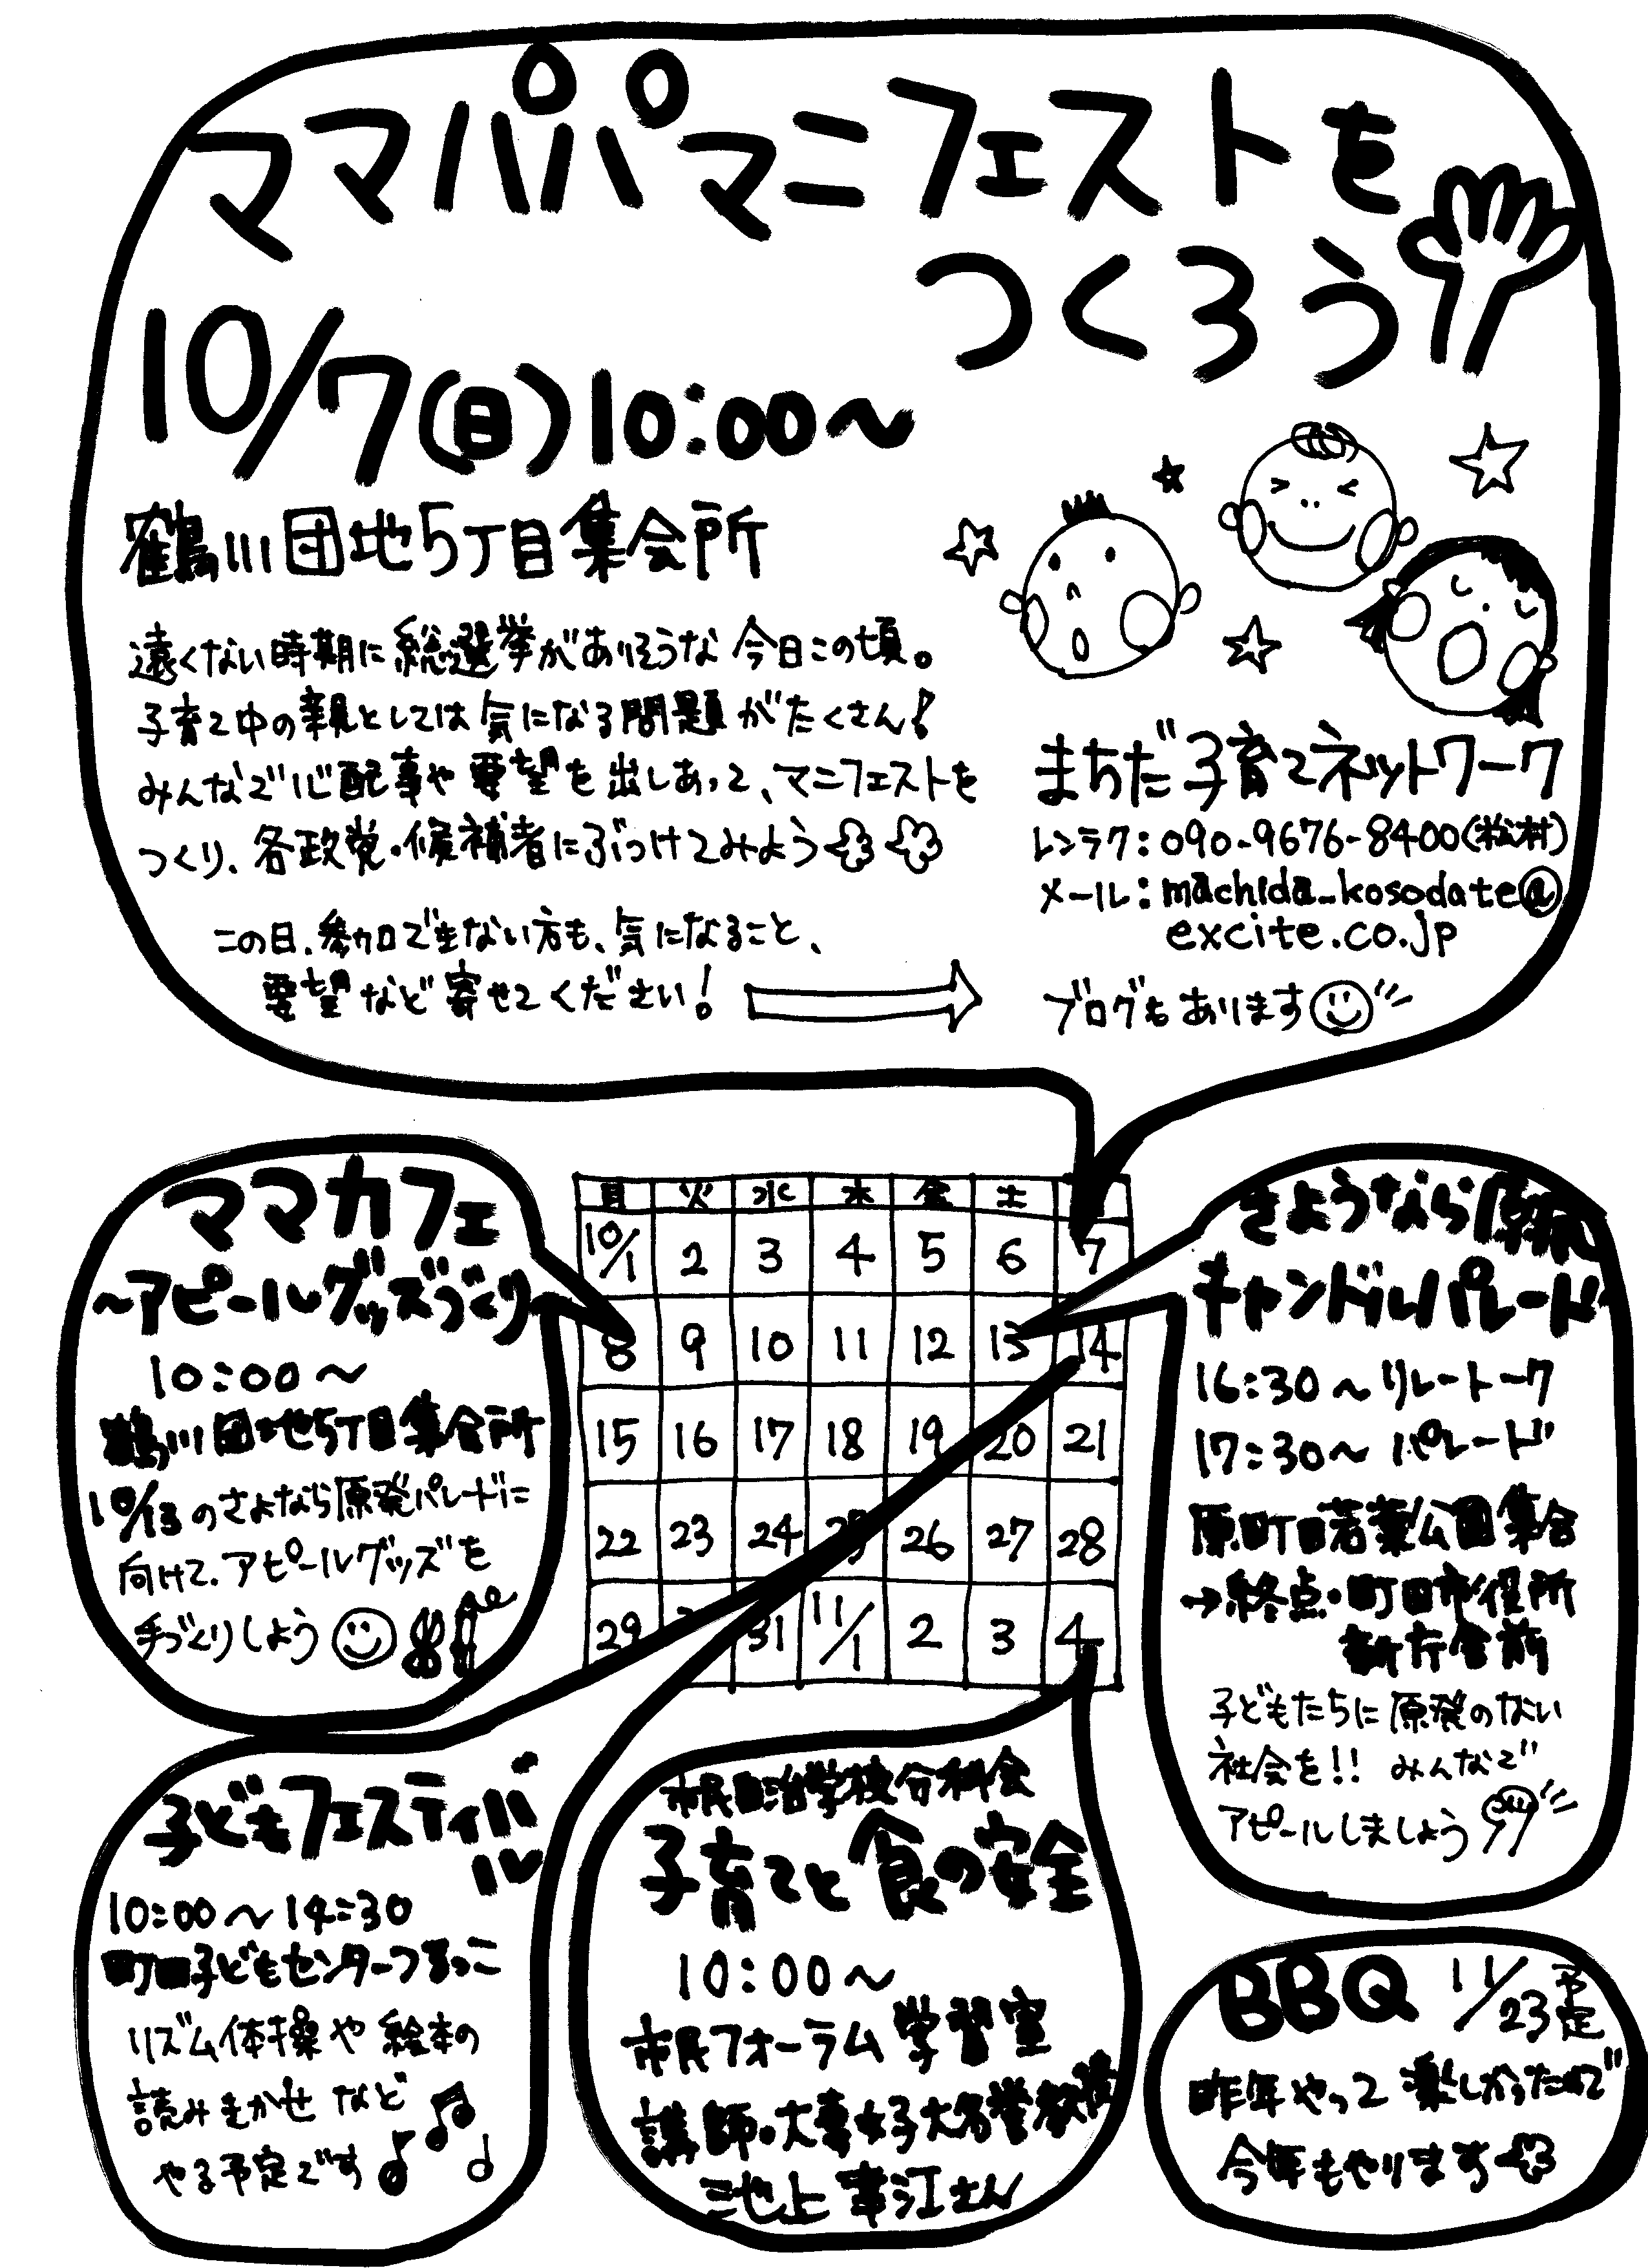 ママパパマニフェストを
つくろう
10/7(日)10:00〜
鶴川団地5丁目集会所
遠くない時期に総選挙がありそうな今日この頃。
子育て中の親としては気になる問題がたくさん!
みんなで心配事や要望を出しあって、マニフェストを
つくり、各政党・候補者にぶつけてみよう
この日、参加できない方も、気になること、
要望など寄せてください!
まちだ子育てネットワーク
レンラク:090-9676-8400(松村)
メール:machida_kosodate@
excite.co.jp
ブログもあります
ママカフェ
〜アピールグッズづくり
10:00〜
鶴川団地5丁目集会所
10/13のさよなら原発パレードに
向けて、アピールグッズを
手づくりしよう
月 火 水 木 金 土
10/1 2 3 4 5 6 7
8 9 10 11 12 13 14
15 16 17 18 19 20 21
22 23 24 25 26 27 28
29 31 11/1 2 3 4
さようなら原発
キャンドルパレード
16:30〜リレートーク
17:30〜パレード
原町田若葉公園集合
→終点・町田市役所
新庁舎前
子どもたちに原発のない
社会を!!みんなで
アピールしましょう
子どもフェスティバル
10:00〜14:30
町田子どもセンターつるっこ
リズム体操や絵本の
読みきかせなど
やる予定です
市民自治学校分科会
子育てと食の安全
10:00〜
市民フォーラム学習室
講師・大妻女子大名誉教授
池上幸江さん
BBQ 11/23予定
昨年やって楽しかったので
今年もやります